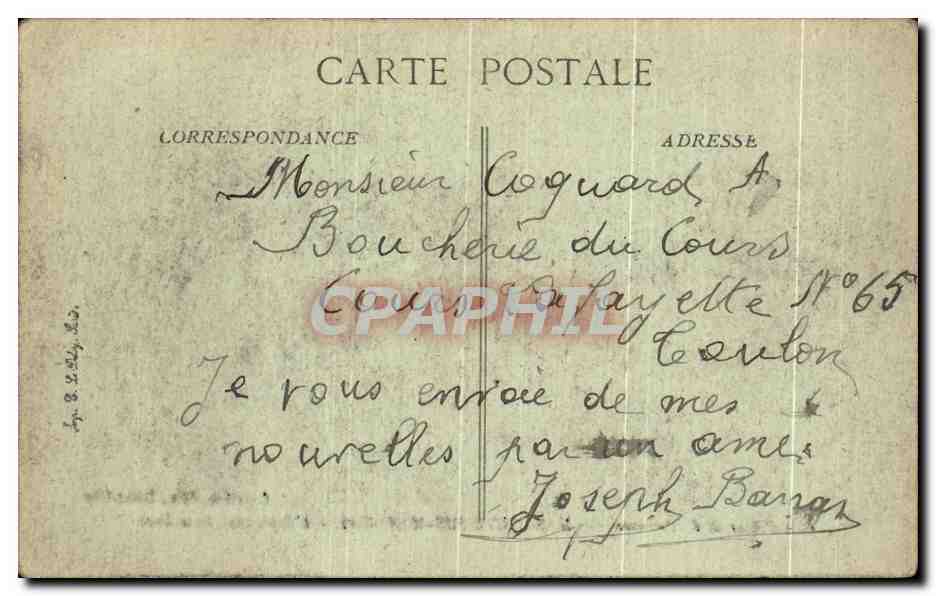 CARTE POSTALE
CORRESPONDANCE
ADRESSE
Monsieur Coquard A.
Boucherie du Cours
Cours Lafayette N° 65
Toulon
Je vous envoie de mes
nouvelles par un ami.
Joseph
CPAPHIL